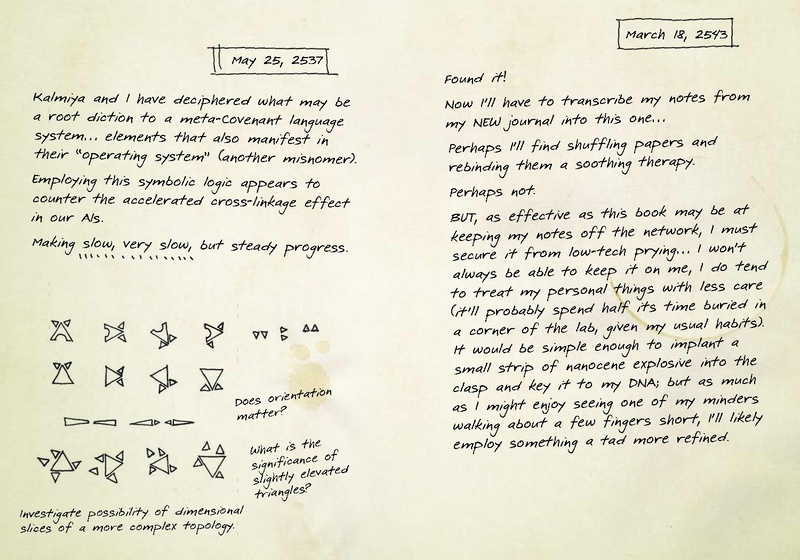 May 25, 2537
Kalmiya and I have deciphered what may be
a root diction to a meta-Covenant language
system... elements that also manifest in
their "operating system" (another misnomer).
Employing this symbolic logic appears to
counter the accelerated cross-linkage effect
in our AIs.
Making slow, very slow, but steady progress.
Does orientation
matter?
What is the
significance of
slightly elevated
triangles?
Investigate possibility of dimensional
slices of a more complex topology.
March 18, 2543
Found it!
Now I'll have to transcribe my notes from
my NEW journal into this one...
Perhaps I'll find shuffling papers and
rebinding them a soothing therapy.
Perhaps not.
BUT, as effective as this book may be at
keeping my notes off the network, I must
secure it from low-tech prying... I won't
always be able to keep it on me, I do tend
to treat my personal things with less care
(it'll probably spend half its time buried in
a corner of the lab, given my usual habits).
It would be simple enough to implant a
small strip of nanocene explosive into the
clasp and key it to my DNA; but as much
as I might enjoy seeing one of my minders
walking about a few fingers short, I'll likely
employ something a tad more refined.